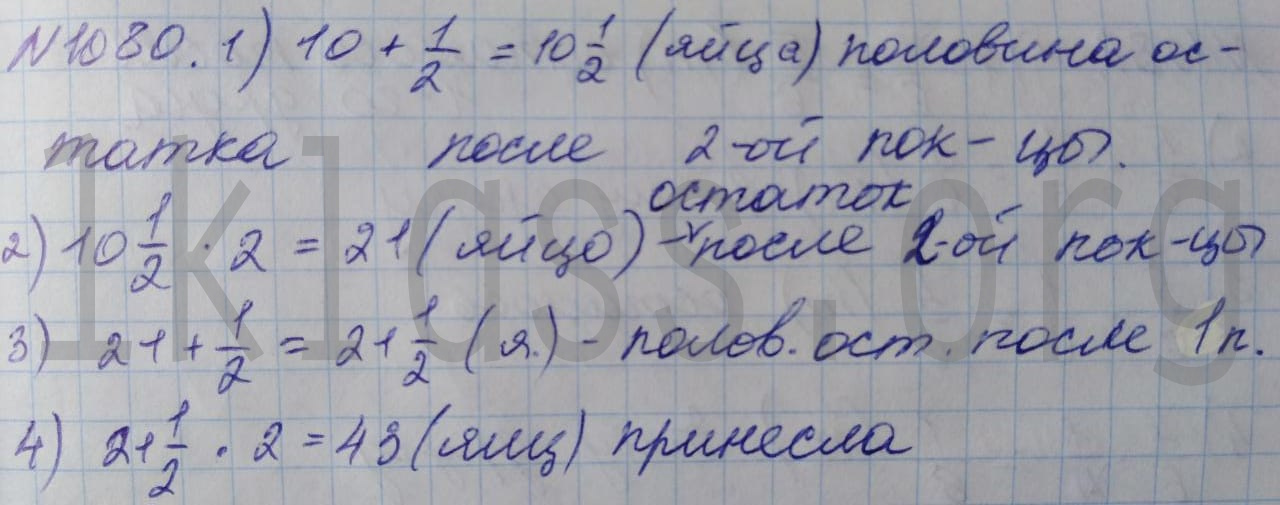 №1080. 1) 10 + 1/2 = 10 1/2 (яйца) половина ос-
татка после 2-ой пок-цы.
остаток
2) 10 1/2 · 2 = 21 (яйцо) - после 2-ой пок-цы
3) 21 + 1/2 = 21 1/2 (я.) - полов. ост. после 1 п.
4) 21 1/2 · 2 = 43 (яиц) принесла
1klass.org